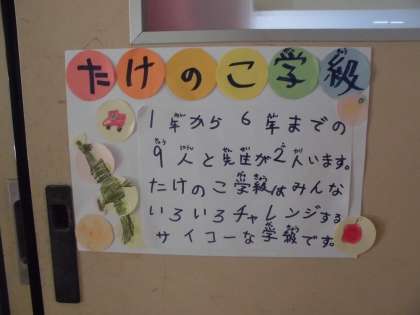 たけのこ学級
1年から6年までの
9人と先生が2人います。
たけのこ学級はみんな
いろいろチャレンジする
サイコーな学級です。